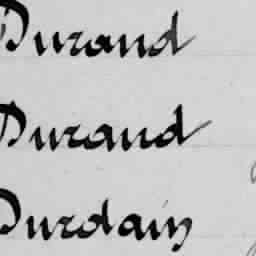 Durand
Durand
Durdain